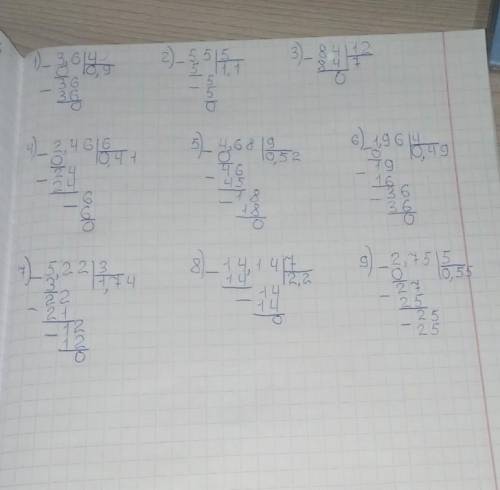 1) - 3,6 | 4    2) - 5,5 | 5    3) - 84 | 12
0 | 0,9    5 | 1,1    84 | 7
- 36    - 5    0
36    5
0    0
4) - 2,46 | 6    5) - 4,68 | 9    6) - 1,96 | 4
0 | 0,41    0 | 0,52    0 | 0,49
- 24    - 46    - 19
24    45    16
- 6    - 18    - 36
6    18    36
0    0    0
7) - 5,22 | 3    8) - 14,14 | 7    9) - 2,75 | 5
3 | 1,74    14 | 2,2    0 | 0,55
- 22    - 14    - 27
21    14    25
- 12    0    - 25
12    25
0